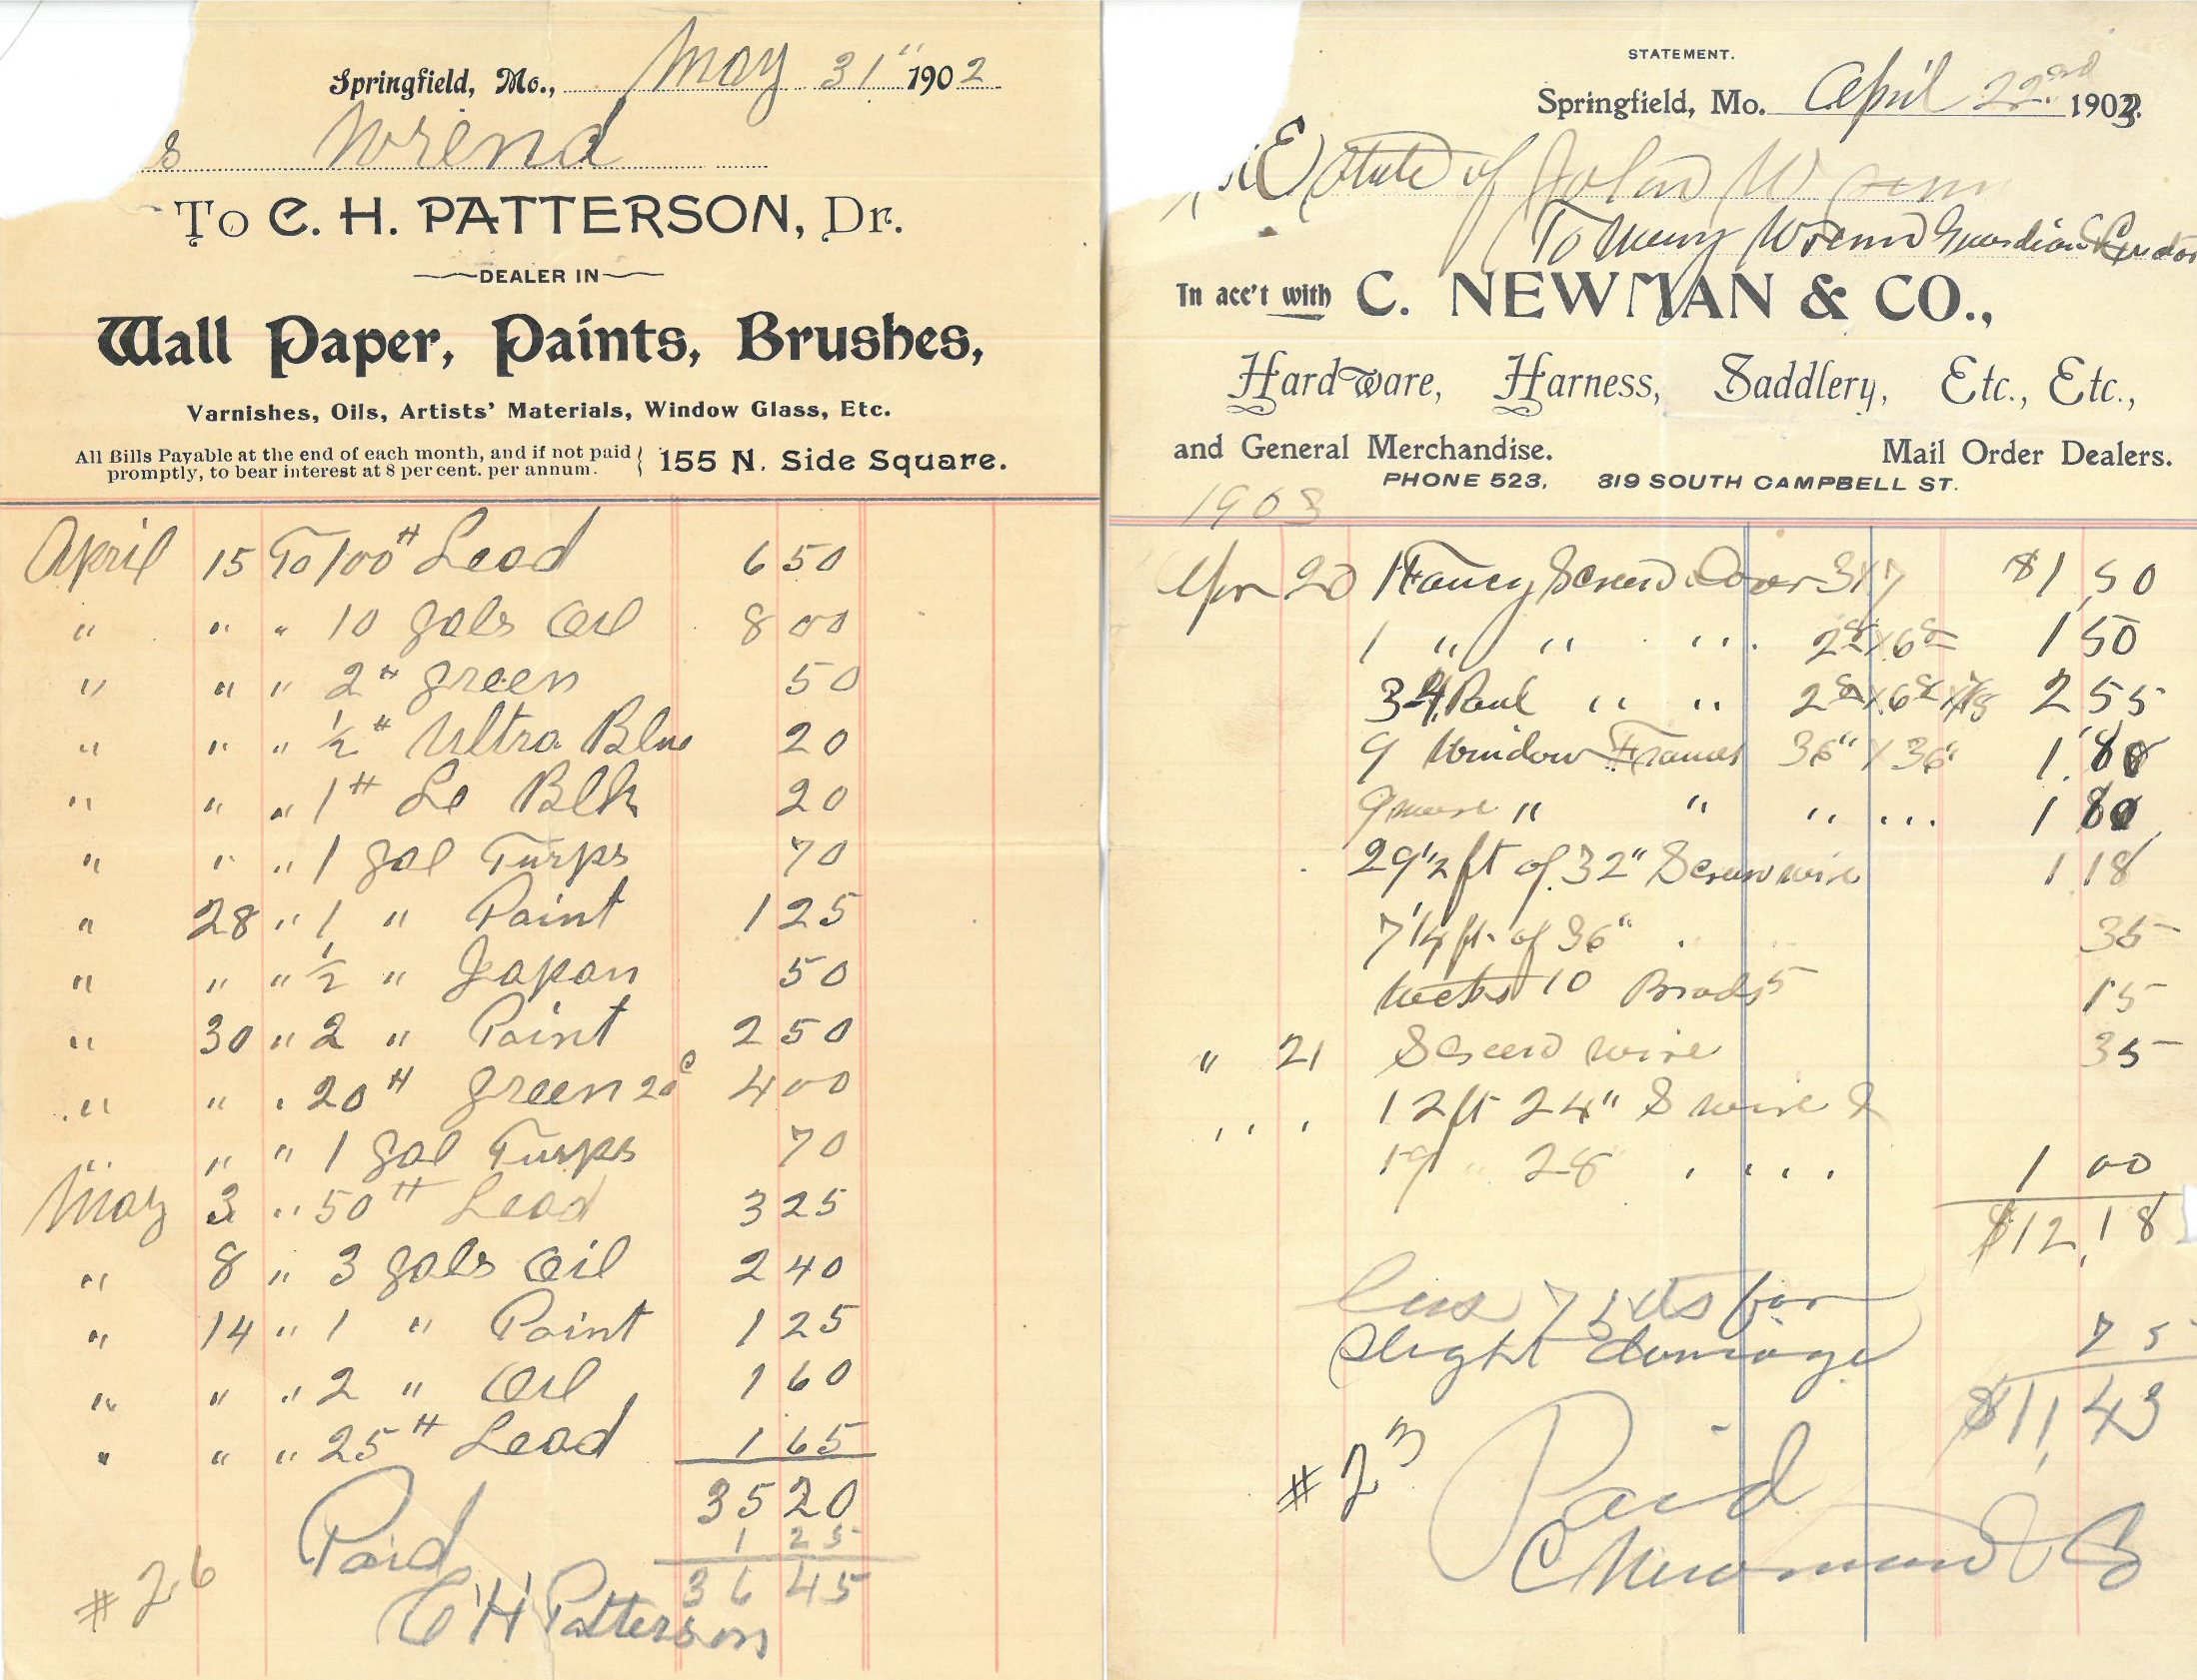 Springfield, Mo., May 31" 1902
s Wrend
To C. H. PATTERSON, Dr.
DEALER IN
Wall Paper, Paints, Brushes,
Varnishes, Oils, Artists' Materials, Window Glass, Etc.
All Bills Payable at the end of each month, and if not paid promptly, to bear interest at 8 per cent. per annum. 155 N. Side Square.
April 15 To 100# Lead 6 50
" " " 10 gals Oil 8 00
" " " 2# green 50
" " " 1/2# Ultra Blue 20
" " " 1# Le Blk 20
" " " 1 gal Turps 70
" 28 " 1 " Paint 1 25
" " " 1/2 " Japan 50
" 30 " 2 " Paint 2 50
" " " 20# green 20c 4 00
" " " 1 gal Turps 70
May 3 " 50# Lead 3 25
" 8 " 3 gals Oil 2 40
" 14 " 1 " Paint 1 25
" " " 2 " Oil 1 60
" " " 25# Lead 1 65
35 20
1 25
36 45
Paid
C H Patterson
#26
STATEMENT.
Springfield, Mo. April 22nd 1903.
Estate of John Wrenn
To Wrenn Guardian & Curator
In acc't with C. NEWMAN & CO.,
Hardware, Harness, Saddlery, Etc., Etc.,
and General Merchandise. Mail Order Dealers.
PHONE 523, 319 SOUTH CAMPBELL ST.
1903
Apr 20 1 Fancy Screen Door 3x7 $1,50
1 " " " 2 8 x 6 8 1 50
3 4 Panl " " 2 8 x 6 8 x 7/8 2 55
9 Window Frames 36" x 36" 1.80
9 more " " " ... 1 80
29 1/2 ft of 32" Screen wire 1 18
7 1/4 ft. of 36" 35
10 Brads 5 15
" 21 Screen wire 35
" " 12 ft 24" S wire &
19 " 28 " " " " 1 00
$12,18
less 75 cts for
slight damage 75
$11,43
#23
Paid
C Newman & Co